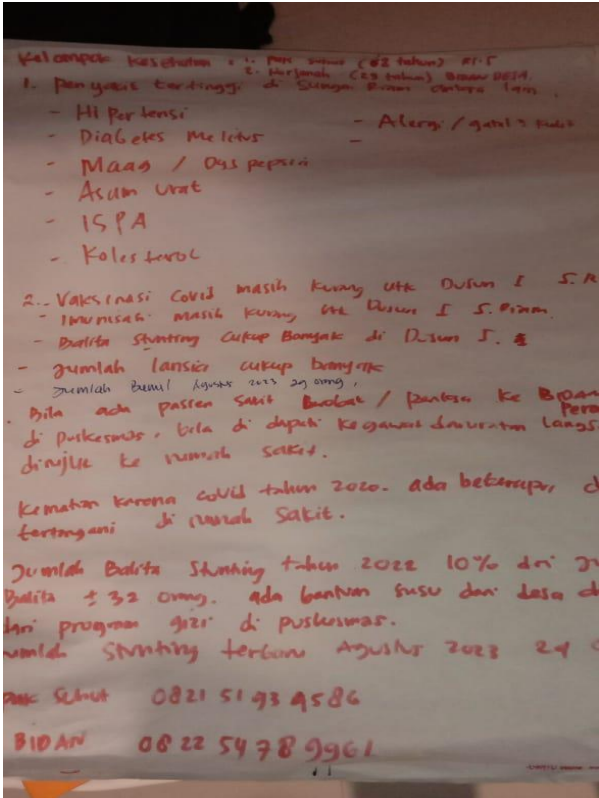 Kelompok Kesehatan : 1. Pak (62 tahun) RT.5
2. Norjanah (29 tahun) BIDAN DESA.
1. Penyakit tertinggi di Sungai Pinam antara lain.
- HiPertensi
- Alergi / gatal2 Kulit
- Diabetes Melitus
-
- Maag / Dyspepsia
- Asam Urat
- ISPA
- Kolesterol
2.- Vaksinasi Covid masih kurang utk Dusun I S.
- Imunisasi masih kurang utk Dusun I S.Pinam.
- Balita Stunting Cukup Banyak di Dusun I.
- Jumlah lansia cukup banyak
- Jumlah Bumil Agustus 2023 29 orang.
. Bila ada pasien sakit Berobat / periksa ke BIDAN
di puskesmas. bila di dapati kegawat daruratan langs
dirujuk ke rumah sakit.
Kematian karena covid tahun 2020. ada beberapa
tertangani di rumah sakit.
Jumlah Balita Stunting tahun 2022 10% dri
Balita ± 32 orang. ada bantuan susu dari desa
dari program gizi di puskesmas.
umlah Stunting terbaru Agustus 2023 29
0821 5193 9586
BIDAN 0822 5478 9961